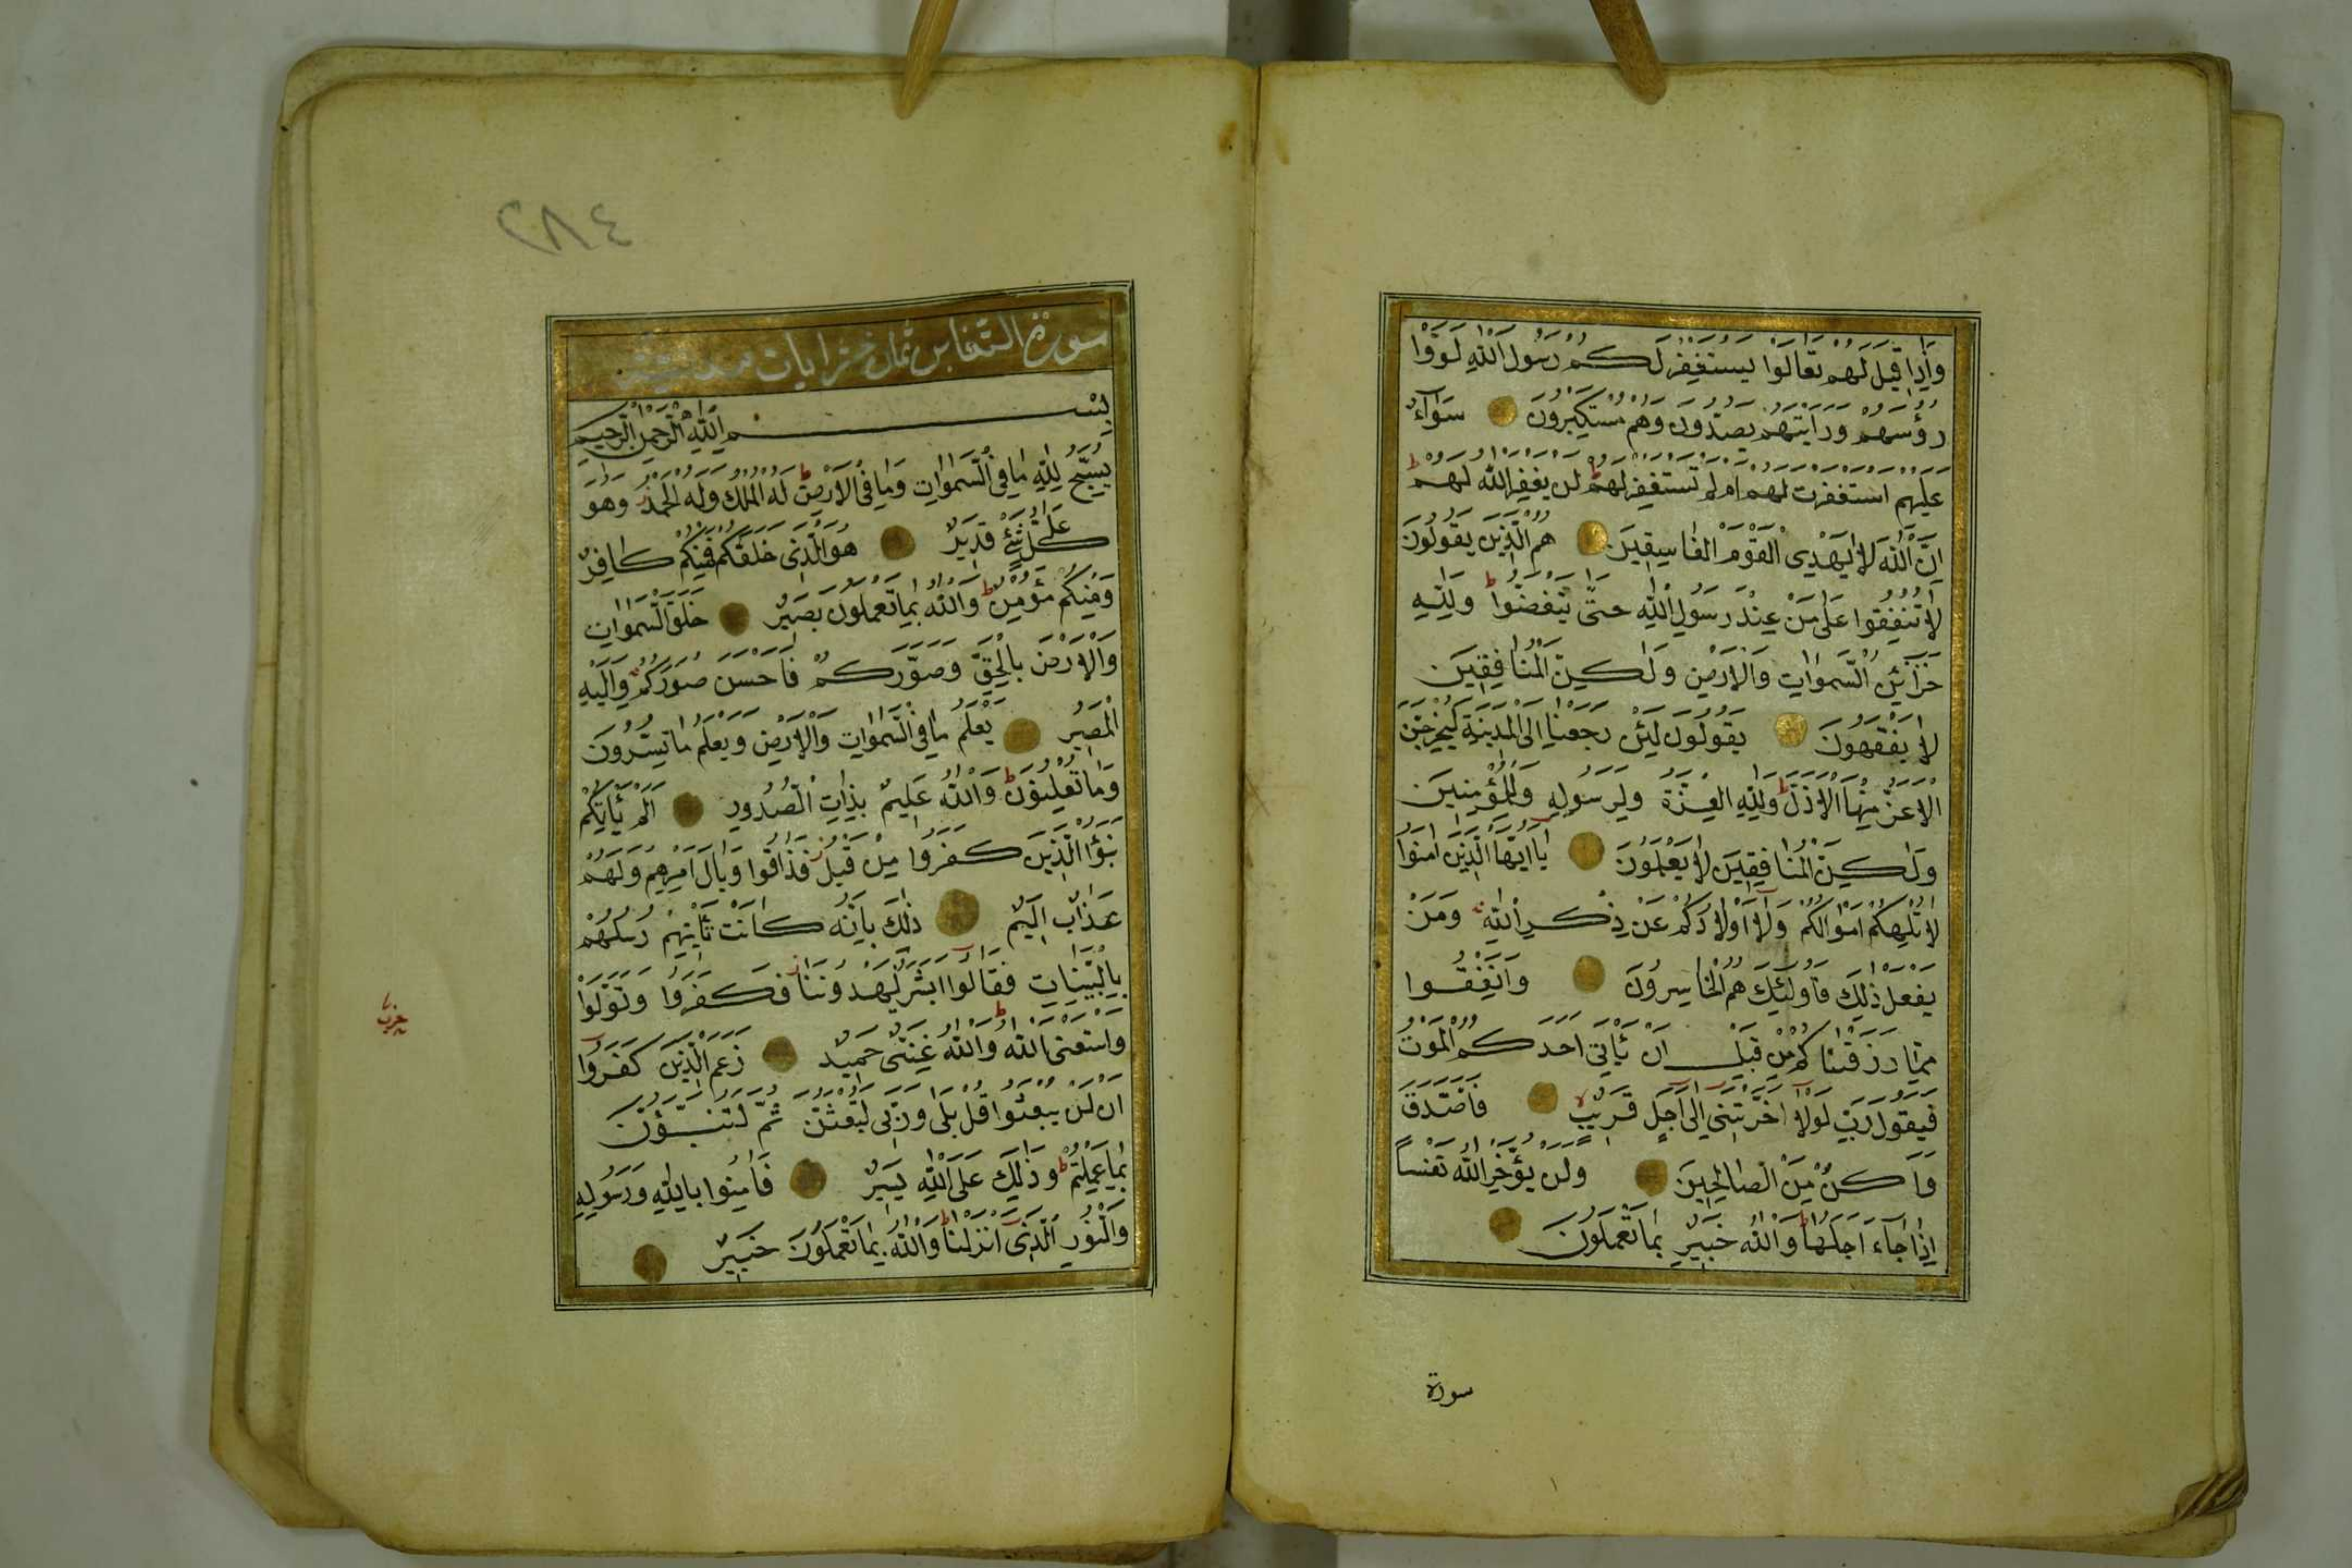 وَاِذَا قِيلَ لَهُمْ تَعَالَوْا يَسْتَغْفِرْ لَكُمْ رَسُولُ اللّٰهِ لَوَّوْا
رُؤُسَهُمْ وَرَاَيْتَهُمْ يَصُدُّونَ وَهُمْ مُسْتَكْبِرُونَ سَوَٓاءٌ
عَلَيْهِمْ اَسْتَغْفَرْتَ لَهُمْ اَمْ لَمْ تَسْتَغْفِرْ لَهُمْ ط لَنْ يَغْفِرَ اللّٰهُ لَهُمْ ط
اِنَّ اللّٰهَ لَا يَهْدِى الْقَوْمَ الْفَاسِقِينَ هُمُ الَّذِينَ يَقُولُونَ
لَا تُنْفِقُوا عَلٰى مَنْ عِنْدَ رَسُولِ اللّٰهِ حَتّٰى يَنْفَضُّوا ط وَلِلّٰهِ
خَزَٓائِنُ السَّمٰوَاتِ وَالْاَرْضِ وَلٰكِنَّ الْمُنَافِقِينَ
لَا يَفْقَهُونَ يَقُولُونَ لَئِنْ رَجَعْنَا اِلَى الْمَدِينَةِ لَيُخْرِجَنَّ
الْاَعَزُّ مِنْهَا الْاَذَلَّ ط وَلِلّٰهِ الْعِزَّةُ وَلِرَسُولِهِ وَلِلْمُؤْمِنِينَ
وَلٰكِنَّ الْمُنَافِقِينَ لَا يَعْلَمُونَ يَا اَيُّهَا الَّذِينَ اٰمَنُوا
لَا تُلْهِكُمْ اَمْوَالُكُمْ وَلَٓا اَوْلَادُكُمْ عَنْ ذِكْرِ اللّٰهِ وَمَنْ
يَفْعَلْ ذٰلِكَ فَاُولٰٓئِكَ هُمُ الْخَاسِرُونَ وَاَنْفِقُوا
مِمَّا رَزَقْنَاكُمْ مِنْ قَبْلِ اَنْ يَأْتِىَ اَحَدَكُمُ الْمَوْتُ
فَيَقُولَ رَبِّ لَوْلَٓا اَخَّرْتَنِى اِلٰٓى اَجَلٍ قَرِيبٍ لا فَاَصَّدَّقَ
وَاَكُنْ مِنَ الصَّالِحِينَ وَلَنْ يُؤَخِّرَ اللّٰهُ نَفْسًا
اِذَا جَٓاءَ اَجَلُهَا ط وَاللّٰهُ خَبِيرٌ بِمَا تَعْمَلُونَ
سورة
٢٨٤
سورة التغابن ثمان عشر ايات مدنية
بِسْمِ اللّٰهِ الرَّحْمٰنِ الرَّحِيمِ
يُسَبِّحُ لِلّٰهِ مَا فِى السَّمٰوَاتِ وَمَا فِى الْاَرْضِ ط لَهُ الْمُلْكُ وَلَهُ الْحَمْدُ ز وَهُوَ
عَلٰى كُلِّ شَىْءٍ قَدِيرٌ هُوَ الَّذِى خَلَقَكُمْ فَمِنْكُمْ كَافِرٌ
وَمِنْكُمْ مُؤْمِنٌ ط وَاللّٰهُ بِمَا تَعْمَلُونَ بَصِيرٌ خَلَقَ السَّمٰوَاتِ
وَالْاَرْضَ بِالْحَقِّ وَصَوَّرَكُمْ فَاَحْسَنَ صُوَرَكُمْ وَاِلَيْهِ
الْمَصِيرُ يَعْلَمُ مَا فِى السَّمٰوَاتِ وَالْاَرْضِ وَيَعْلَمُ مَا تُسِرُّونَ
وَمَا تُعْلِنُونَ ط وَاللّٰهُ عَلِيمٌ بِذَاتِ الصُّدُورِ اَلَمْ يَأْتِكُمْ
نَبَؤُا الَّذِينَ كَفَرُوا مِنْ قَبْلُ ز فَذَاقُوا وَبَالَ اَمْرِهِمْ وَلَهُمْ
عَذَابٌ اَلِيمٌ ذٰلِكَ بِاَنَّهُ كَانَتْ تَأْتِيهِمْ رُسُلُهُمْ
بِالْبَيِّنَاتِ فَقَالُٓوا اَبَشَرٌ يَهْدُونَنَا ز فَكَفَرُوا وَتَوَلَّوْا
وَاسْتَغْنَى اللّٰهُ ط وَاللّٰهُ غَنِىٌّ حَمِيدٌ زَعَمَ الَّذِينَ كَفَرُٓوا
اَنْ لَنْ يُبْعَثُوا قُلْ بَلٰى وَرَبِّى لَتُبْعَثُنَّ ثُمَّ لَتُنَبَّؤُنَّ
بِمَا عَمِلْتُمْ ط وَذٰلِكَ عَلَى اللّٰهِ يَسِيرٌ فَاٰمِنُوا بِاللّٰهِ وَرَسُولِهِ
وَالنُّورِ الَّذِى اَنْزَلْنَا ط وَاللّٰهُ بِمَا تَعْمَلُونَ خَبِيرٌ
حزب